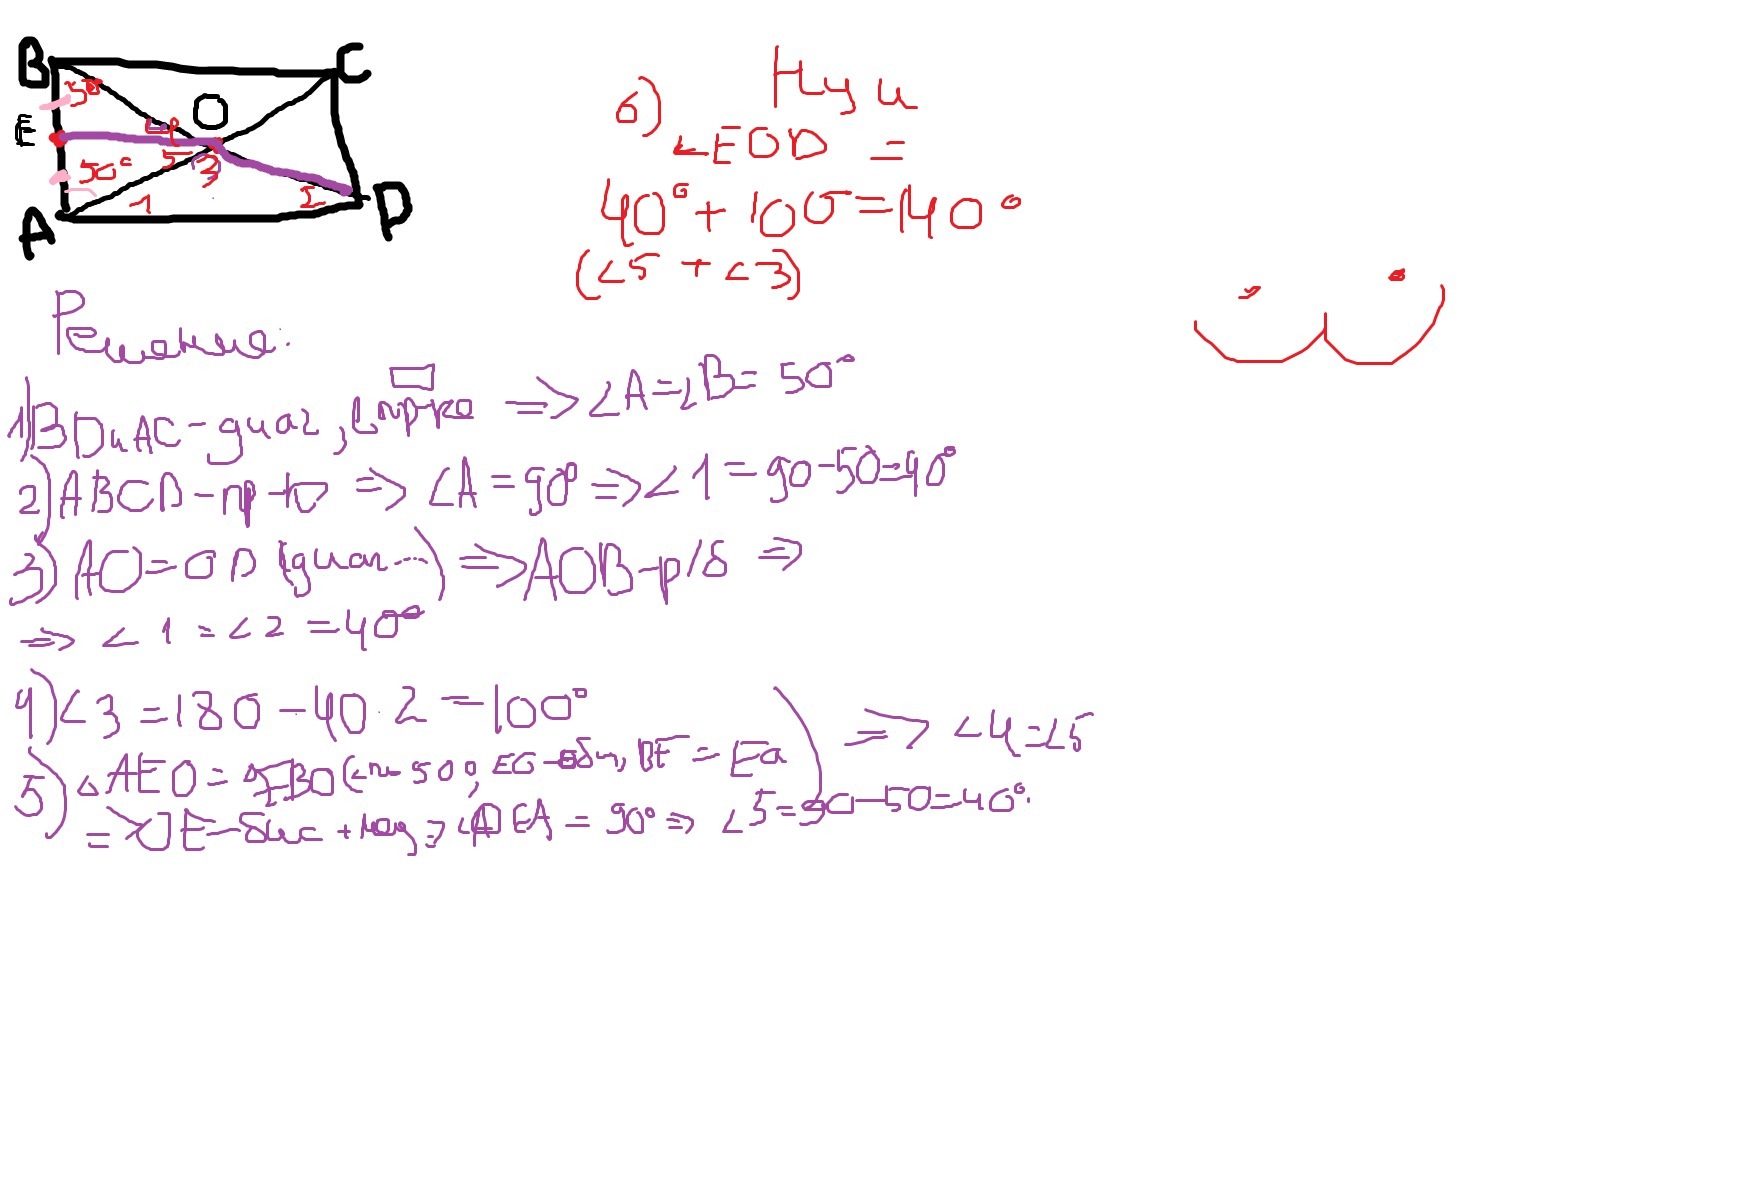 B
C
E
A
D
O
50°
4
5
3
50°
1
2
6) Ну и
∠EOD =
40° + 100 = 140°
(∠5 + ∠3)
Решение:
1) BD и AC - диаг, в пр-ке => ∠A = ∠B = 50°
2) ABCD - пр-к => ∠A = 90° => ∠1 = 90 - 50 = 40°
3) AO = OD (диаг...) => AOB - р/б =>
=> ∠1 = ∠2 = 40°
4) ∠3 = 180 - 40·2 = 100°
5) △AEO = EBO (50°, EO - общ, BE = EA => ∠4 = ∠5
=> OE - бис + => ∠OEA = 90° => ∠5 = 90 - 50 = 40°